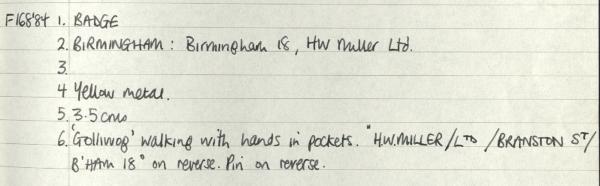 F168'84 1. BADGE
2. BIRMINGHAM: Birmingham 18, HW Miller Ltd.
3.
4 Yellow metal.
5. 3.5 cms
6. 'Golliwog' walking with hands in pockets. "H.W.MILLER/LTD /BRANSTON ST/
B'HAM 18" on reverse. Pin on reverse.